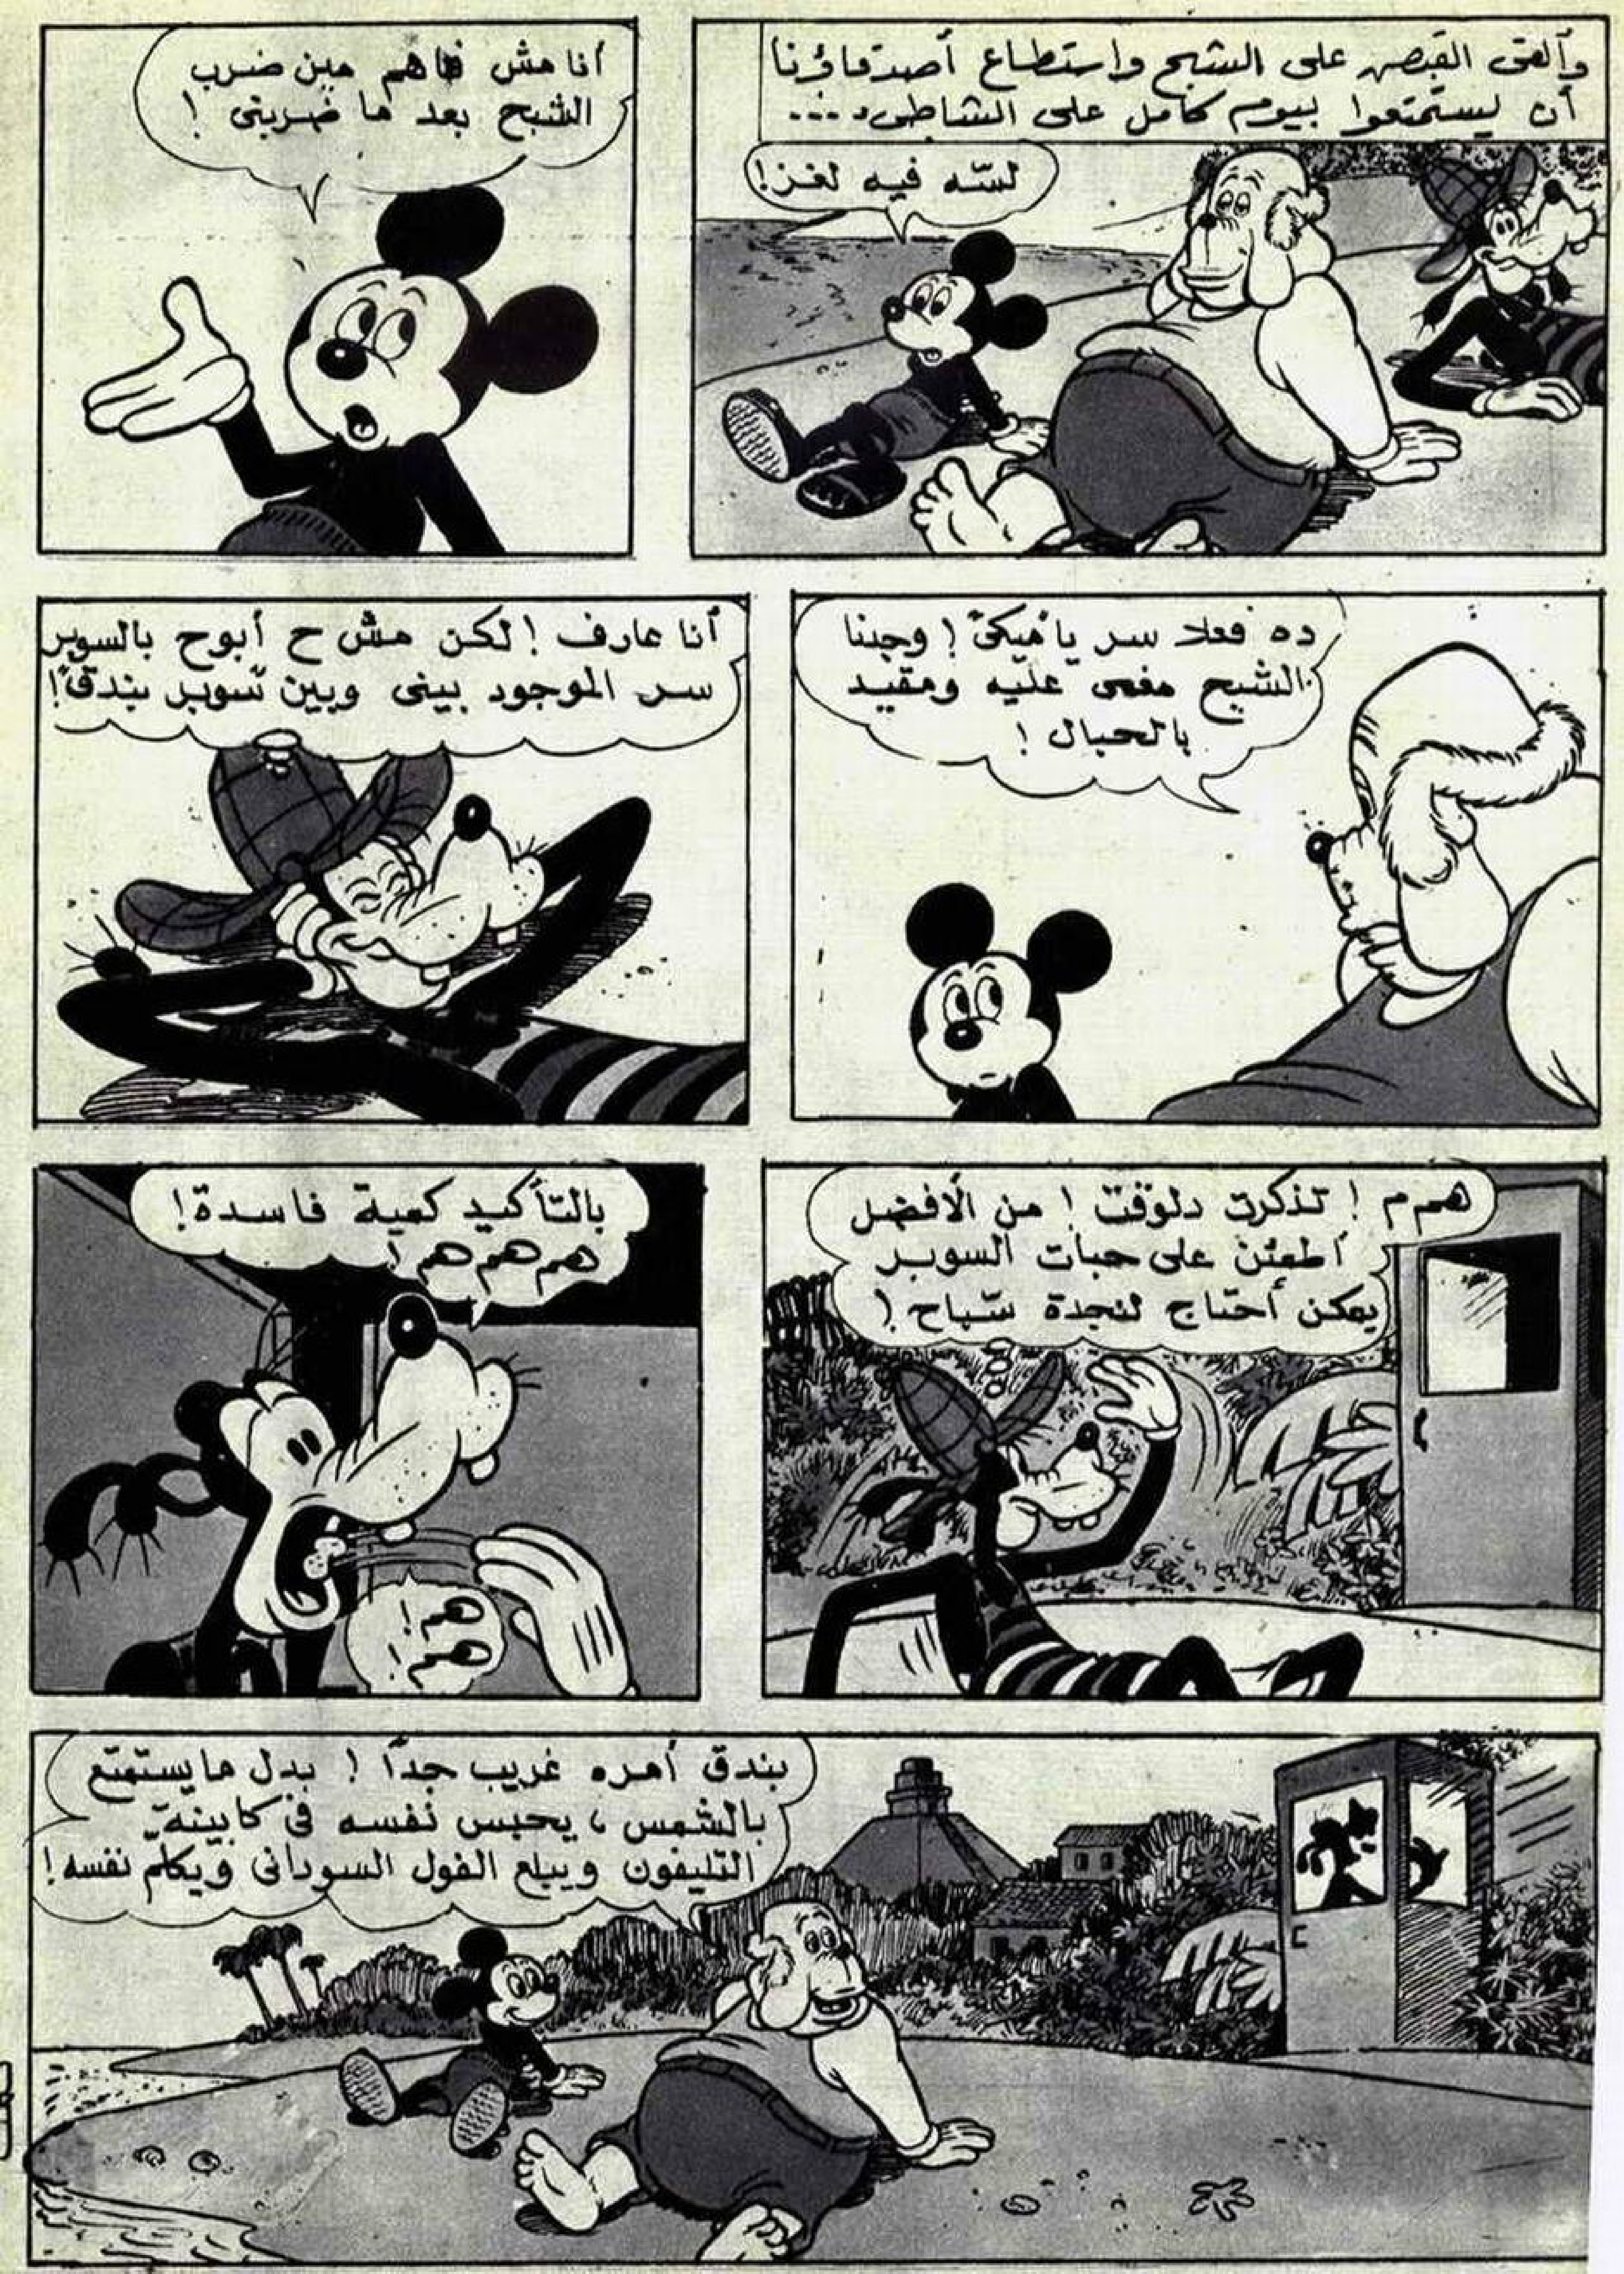 وألقى القبض على الشبح واستطاع أصدقاؤنا
أن ليستمتعوا بيوم كامل على الشاطىء...
لسّه فيه لغز!
أنا مش فاهم مين ضرب
الشبح بعد ما ضربنى !
ده فعلا سر يا ميكى ! وجدنا
الشبح مغمى عليه ومقيد
بالحبال !
أنا عارف ! لكن مش ح أبوح بالسوبر
سر الموجود بينى وبين سوبر بندق !
هممم ! تذكرت دلوقت ! من الأفضل
اطمئن على حبات السوبر
يمكن أحتاج لنجدة سّباح !
بالتأكيد كمية فاسدة !
هم هم هم !
بندق أمره غريب جدًا ! بدل ما يستمتع
بالشمس ، يحبس نفسه فى كابينة
التليفون ويبلع الفول السودانى ويكلم نفسه !